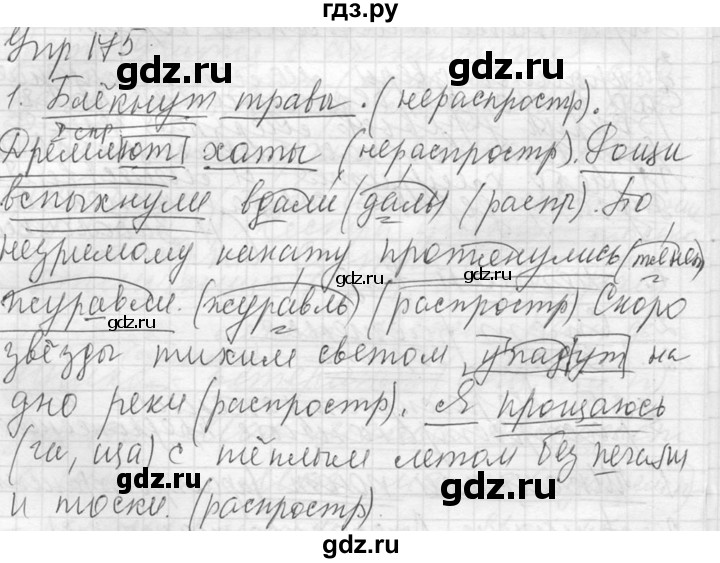 гдз.ру
Упр 175.
1. Блёкнут травы. (нераспростр).
2 спр.
Дремлют хаты (нераспростр). Рощи
вспыхнули вдали (даль) (распр). По
незримому канату протянулись (тянет)
журавли. (журавль) (распростр). Скоро
звёзды тихим светом упадут на
дно реки (распростр). Я прощаюсь
(ча, ща) с тёплым летом без печали
и тоски. (распростр).
gdz.ru
gdz.ru
gdz.ru
gdz.ru
gdz.ru
gdz.ru
gdz.ru
gdz.ru
gdz.ru
gdz.ru
gdz.ru
gdz.ru